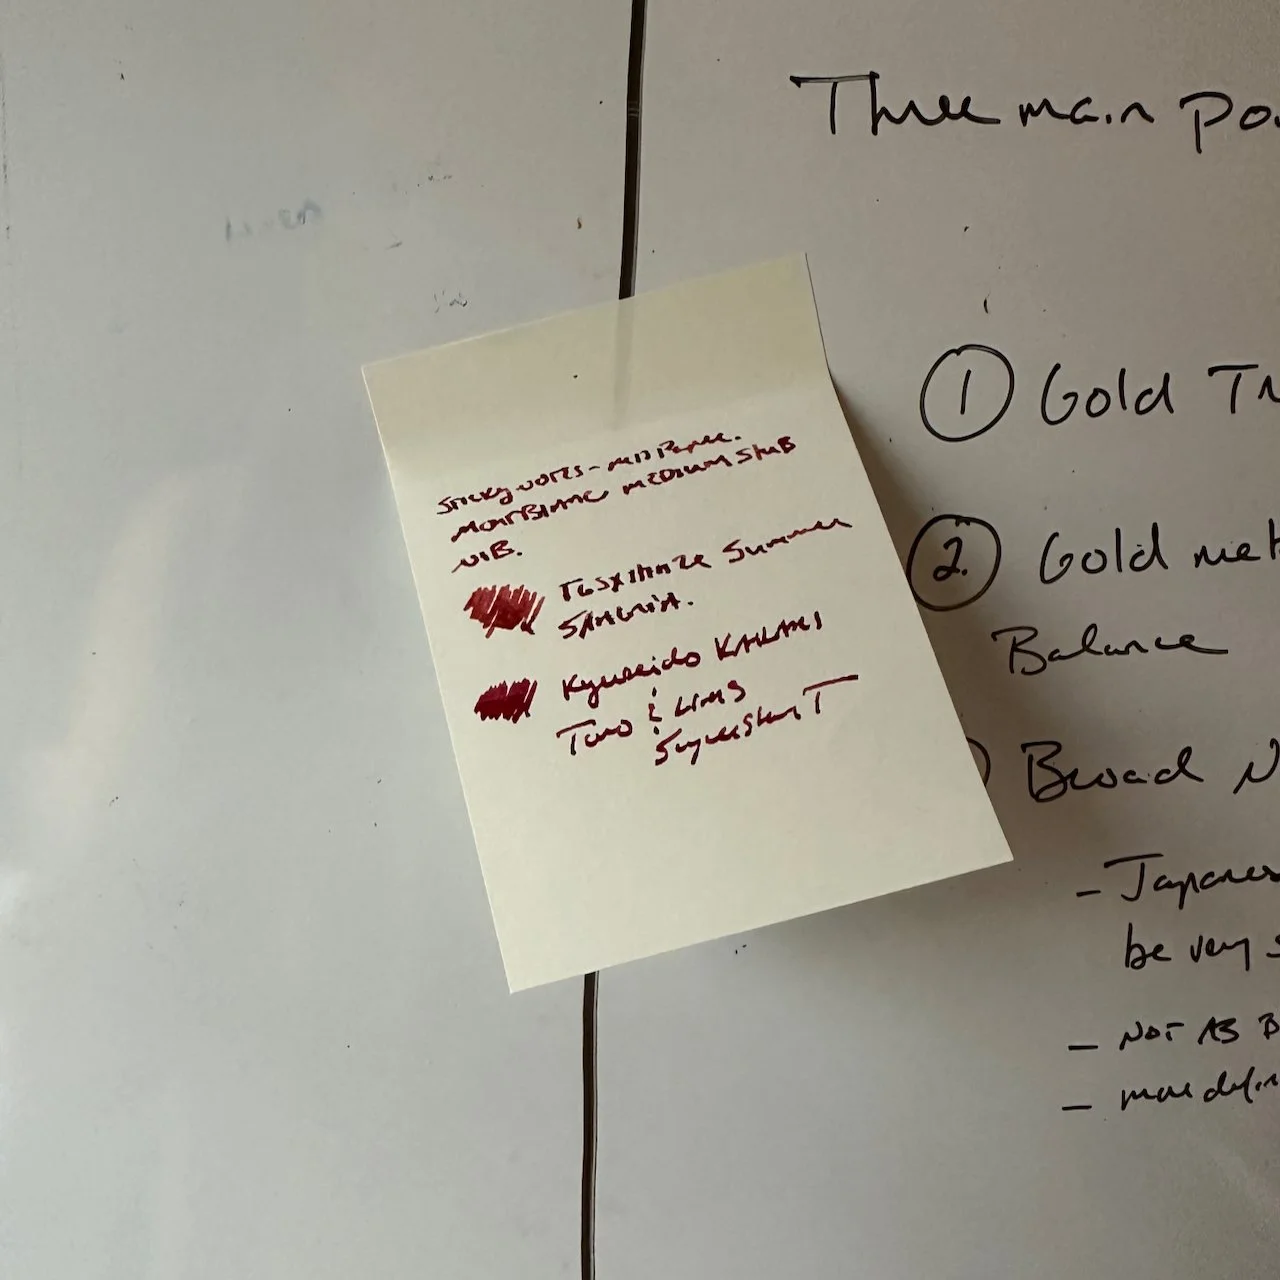 Sticky notes - MD Paper.
MontBlanc medium Stub
NIB.
Summer
Sangria.
Kyuseido Kakari
Two & Lims
Superstar T
Three main Po
1 Gold Tr
2. Gold met
Balance
Broad N
- Japanes
be very s
- NOT AS B
- more defin